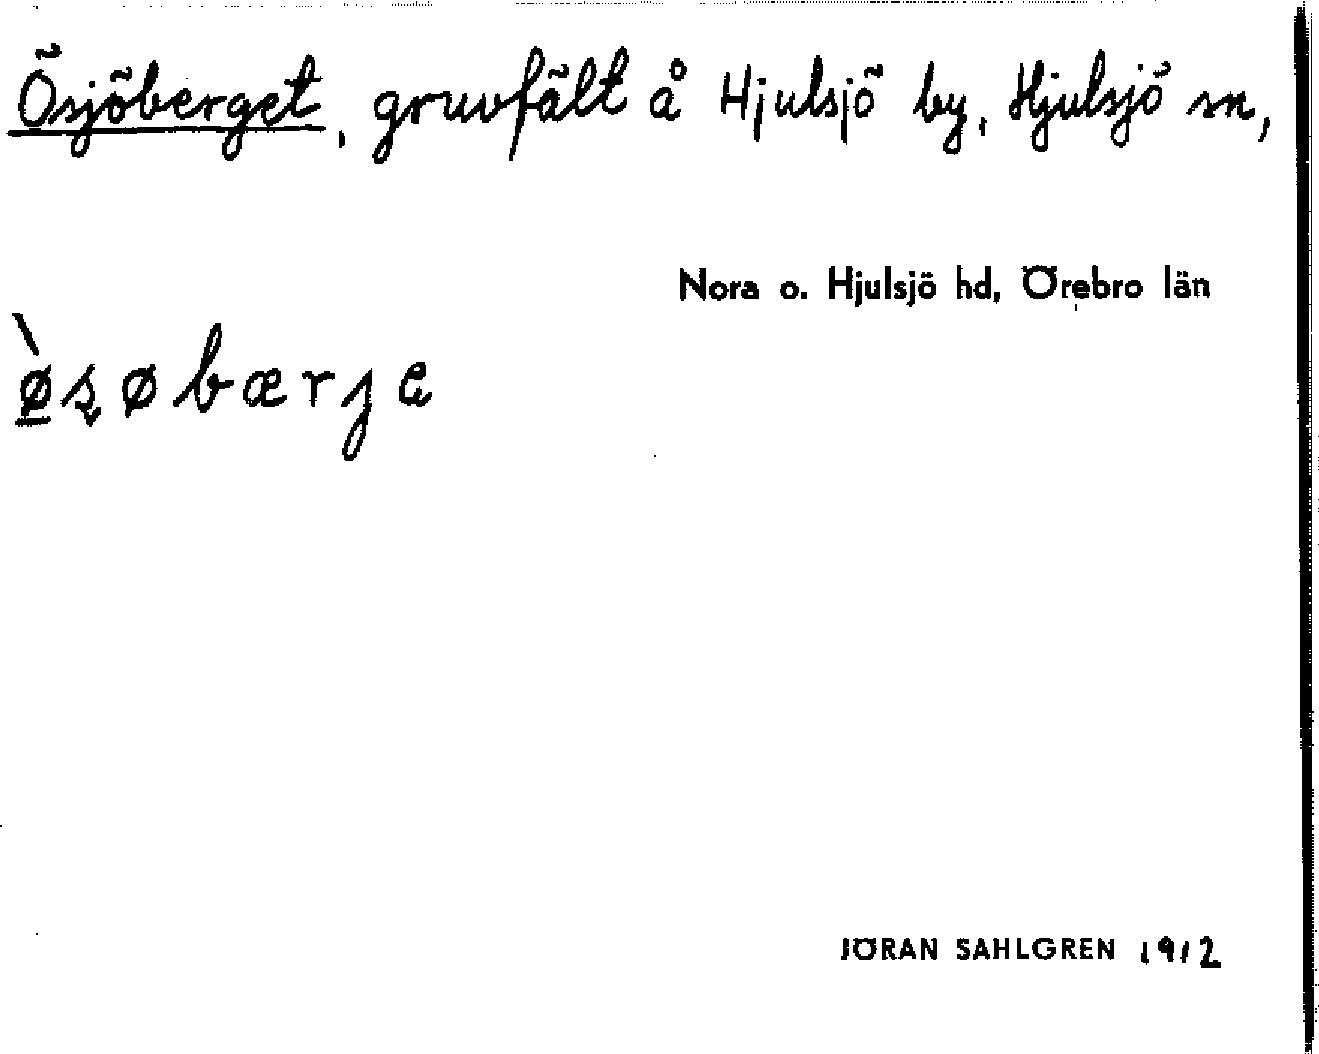 Ösjöberget, gruvfält å Hjulsjö by, Hjulsjö sn,
Nora o. Hjulsjö hd, Örebro län
JÖRAN SAHLGREN 1912